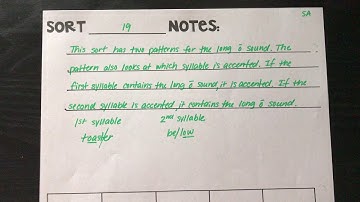 SA
SORT 19 NOTES:
This sort has two patterns for the long ō sound. The
pattern also looks at which syllable is accented. If the
first syllable contains the long ō sound, it is accented. If the
second syllable is accented, it contains the long ō sound.
1st syllable 2nd syllable
toaster below